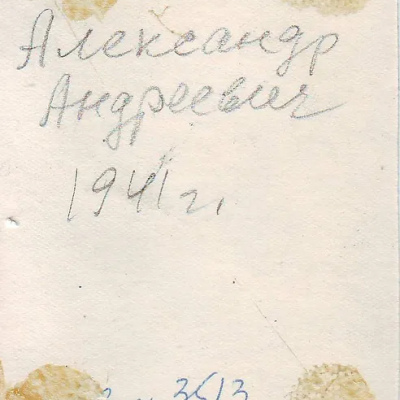 Александр
Андреевич
1941 г.
3513